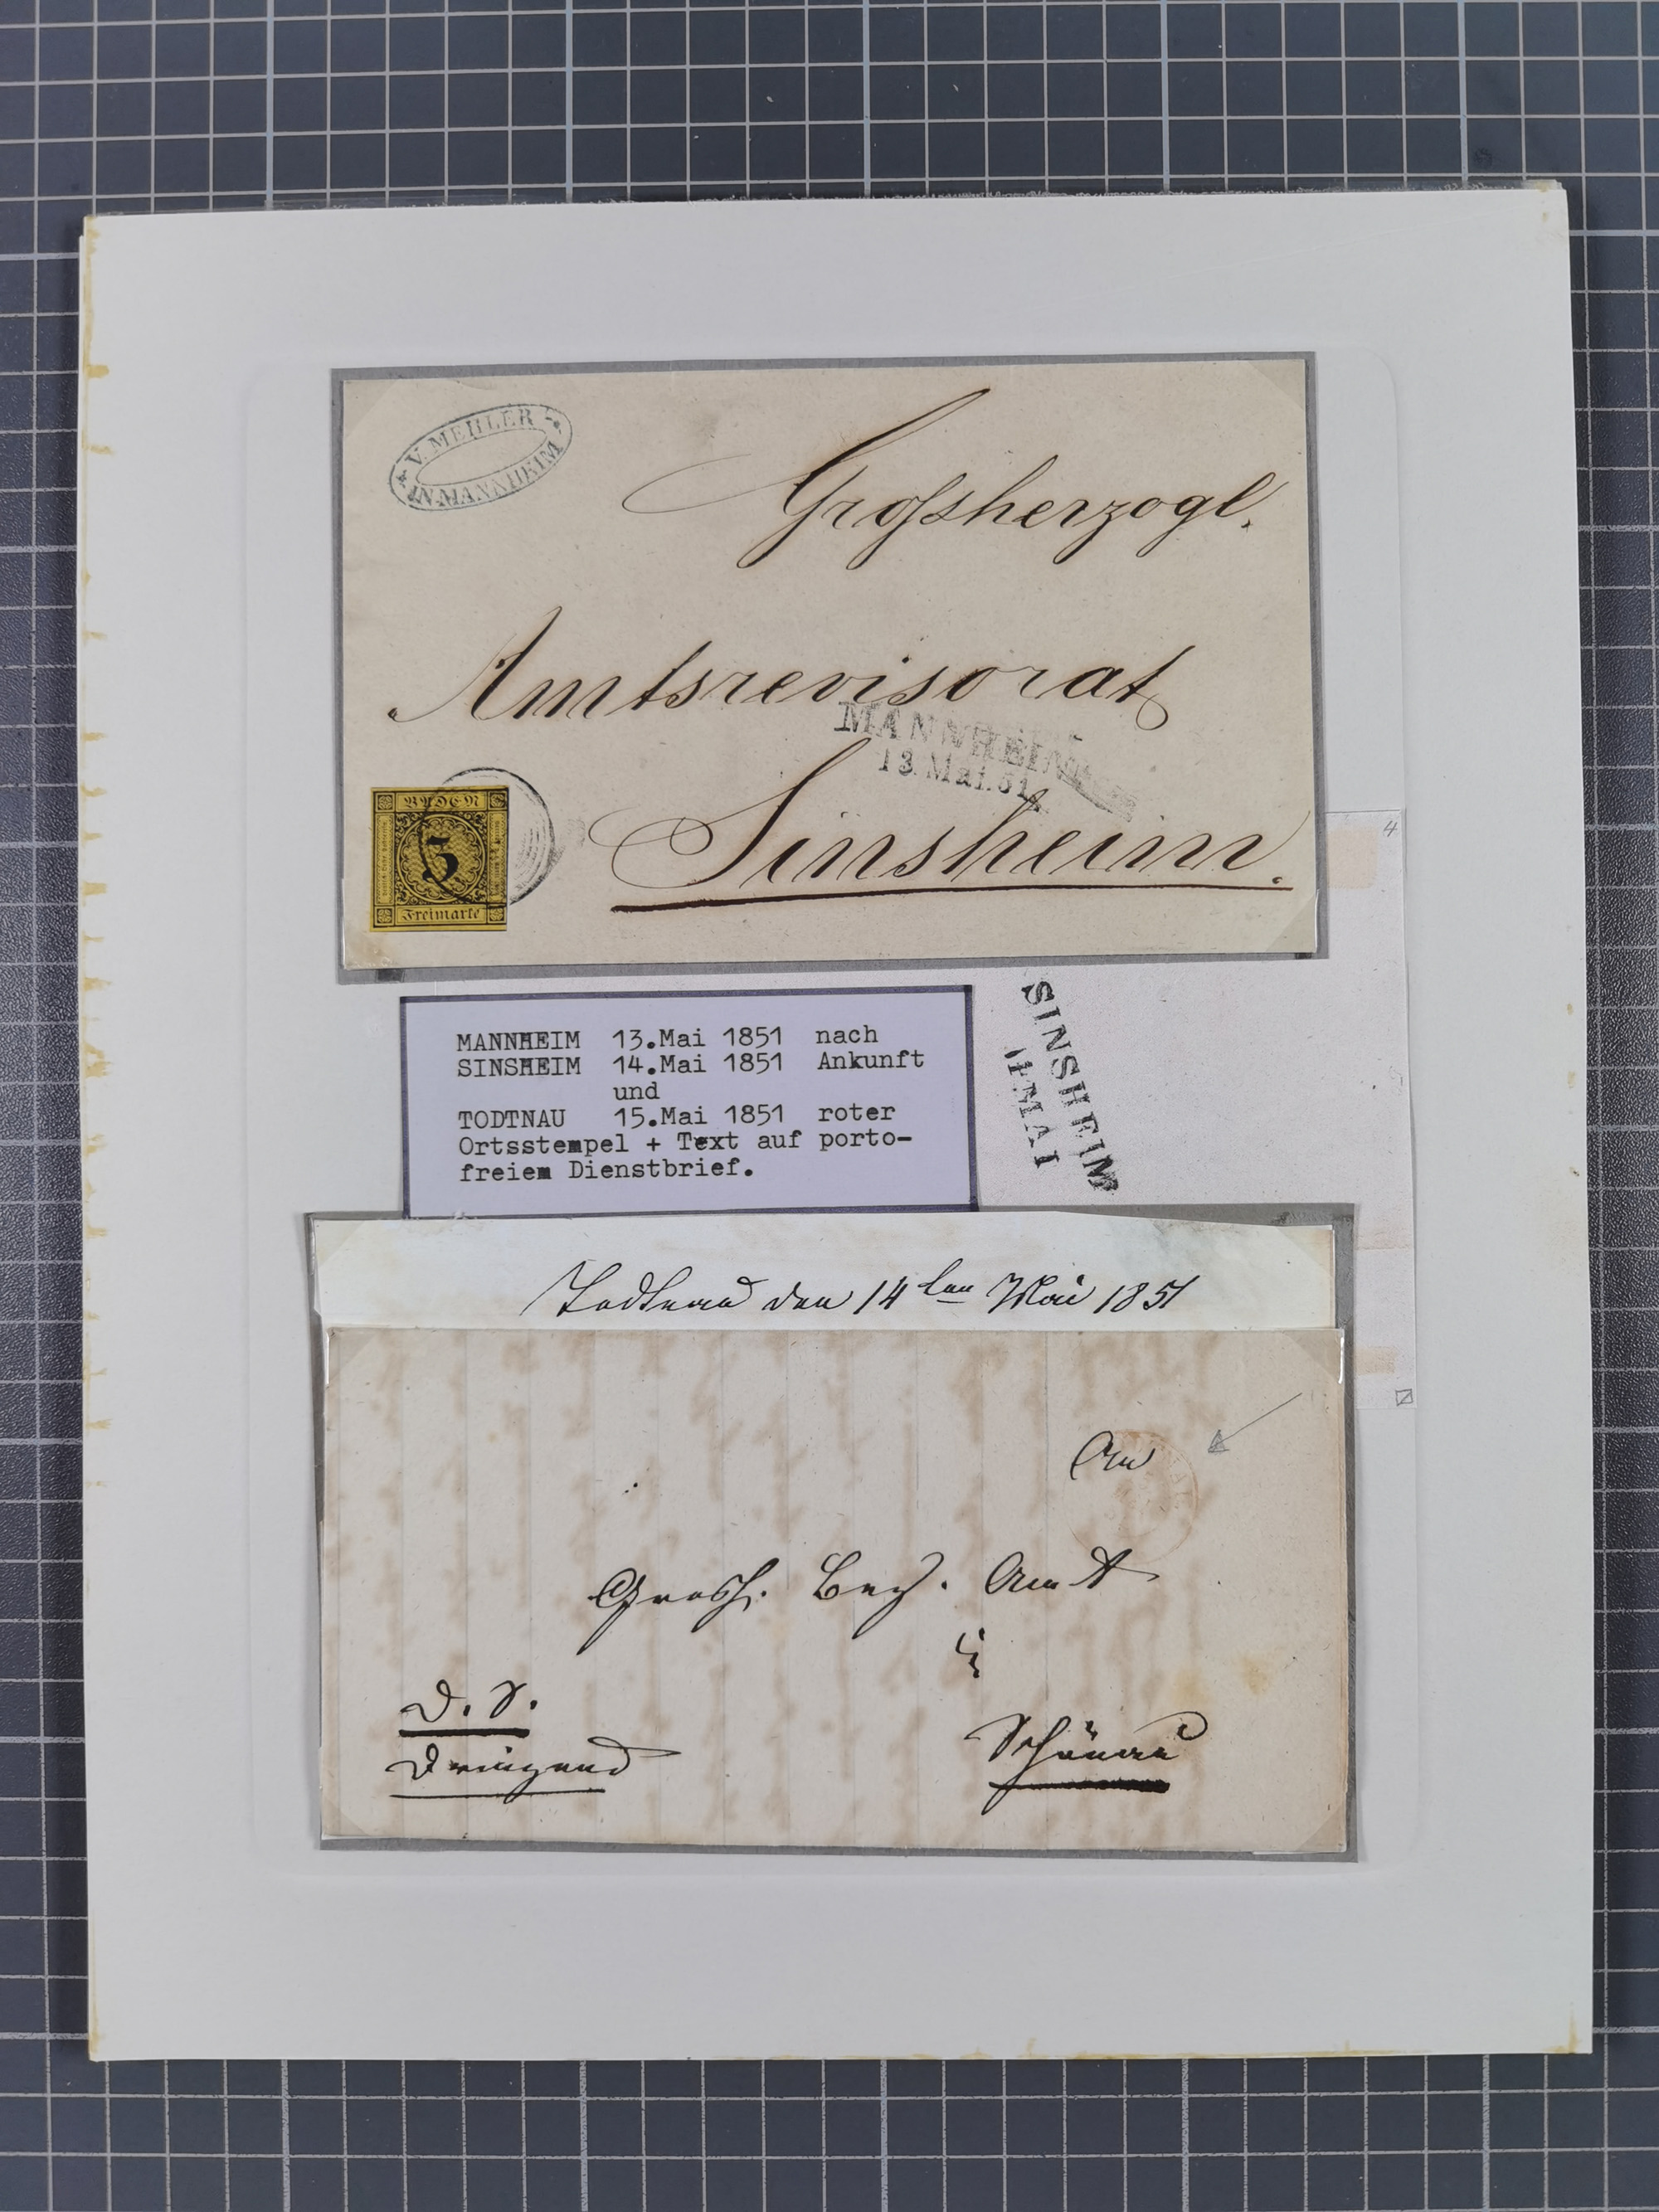 V. MEHLER
IN MANNHEIM
Großherzogl.
Amtsrevisorat
MANNHEIM
13. Mai. 51.
Sinsheim.
BADEN
3
Freimarke
4
MANNHEIM 13.Mai 1851 nach
SINSHEIM 14.Mai 1851 Ankunft
und
TODTNAU 15.Mai 1851 roter
Ortsstempel + Text auf porto-
freiem Dienstbrief.
SINSHEIM
14 MAI
Todtnau den 14ten Mai 1851
An
Grosh. Bez. Amt
in
Schönau
D. S.
Dringend